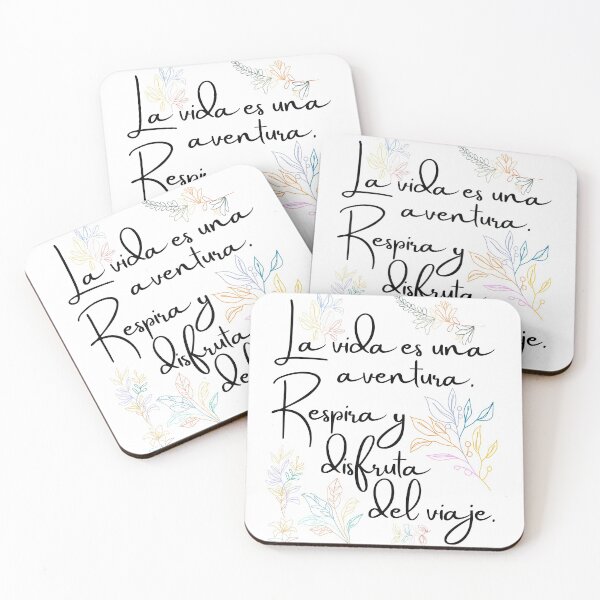 La vida es una
aventura.
Respi
La vida es una
aventura.
Respira y
disfruta
je.
La vida es una
aventura.
Respira y
disfruta
de
La vida es una
aventura.
Respira y
disfruta
del viaje.